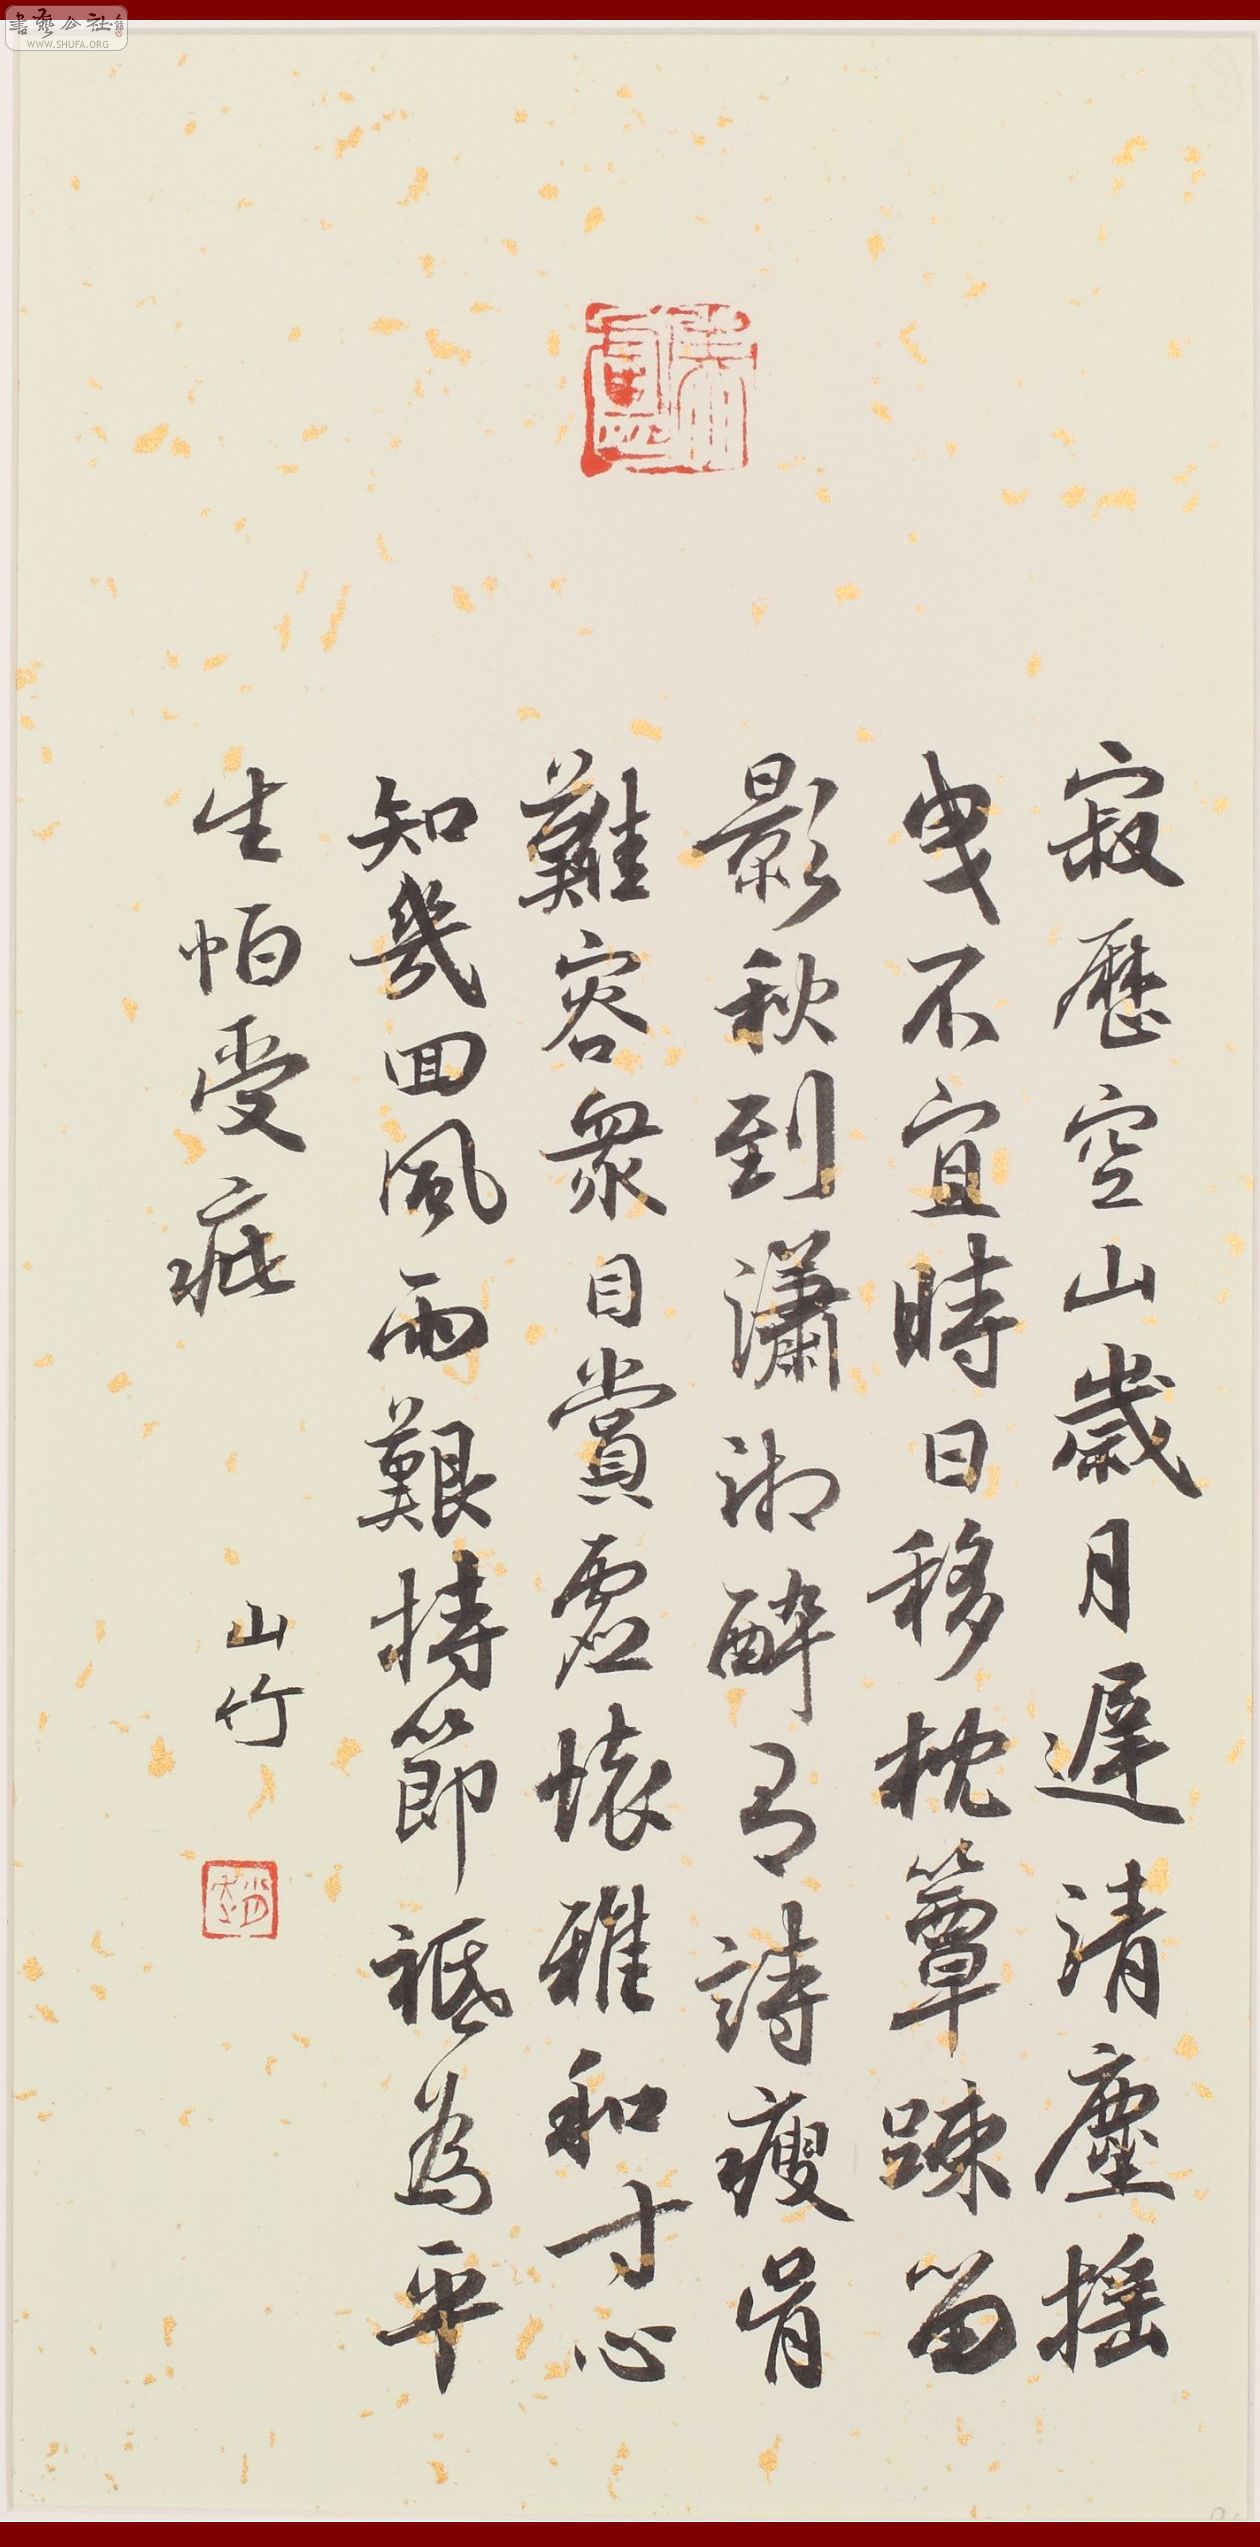 書藝公社
WWW.SHUFA.ORG
寂歷空山歲月遲清塵搖
曳不宜時日移枕簟踈留
影秋到瀟湘醉有詩瘦骨
難容衆目賞虛懷雅和寸心
知幾囬風雨艱持節祗為平
生怕受疵
山竹